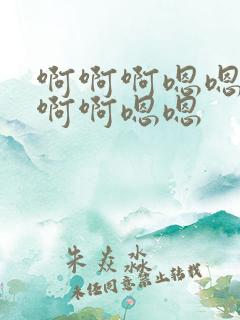 啊啊啊嗯嗯
啊啊嗯嗯
朱焱淼
未经同意禁止转载